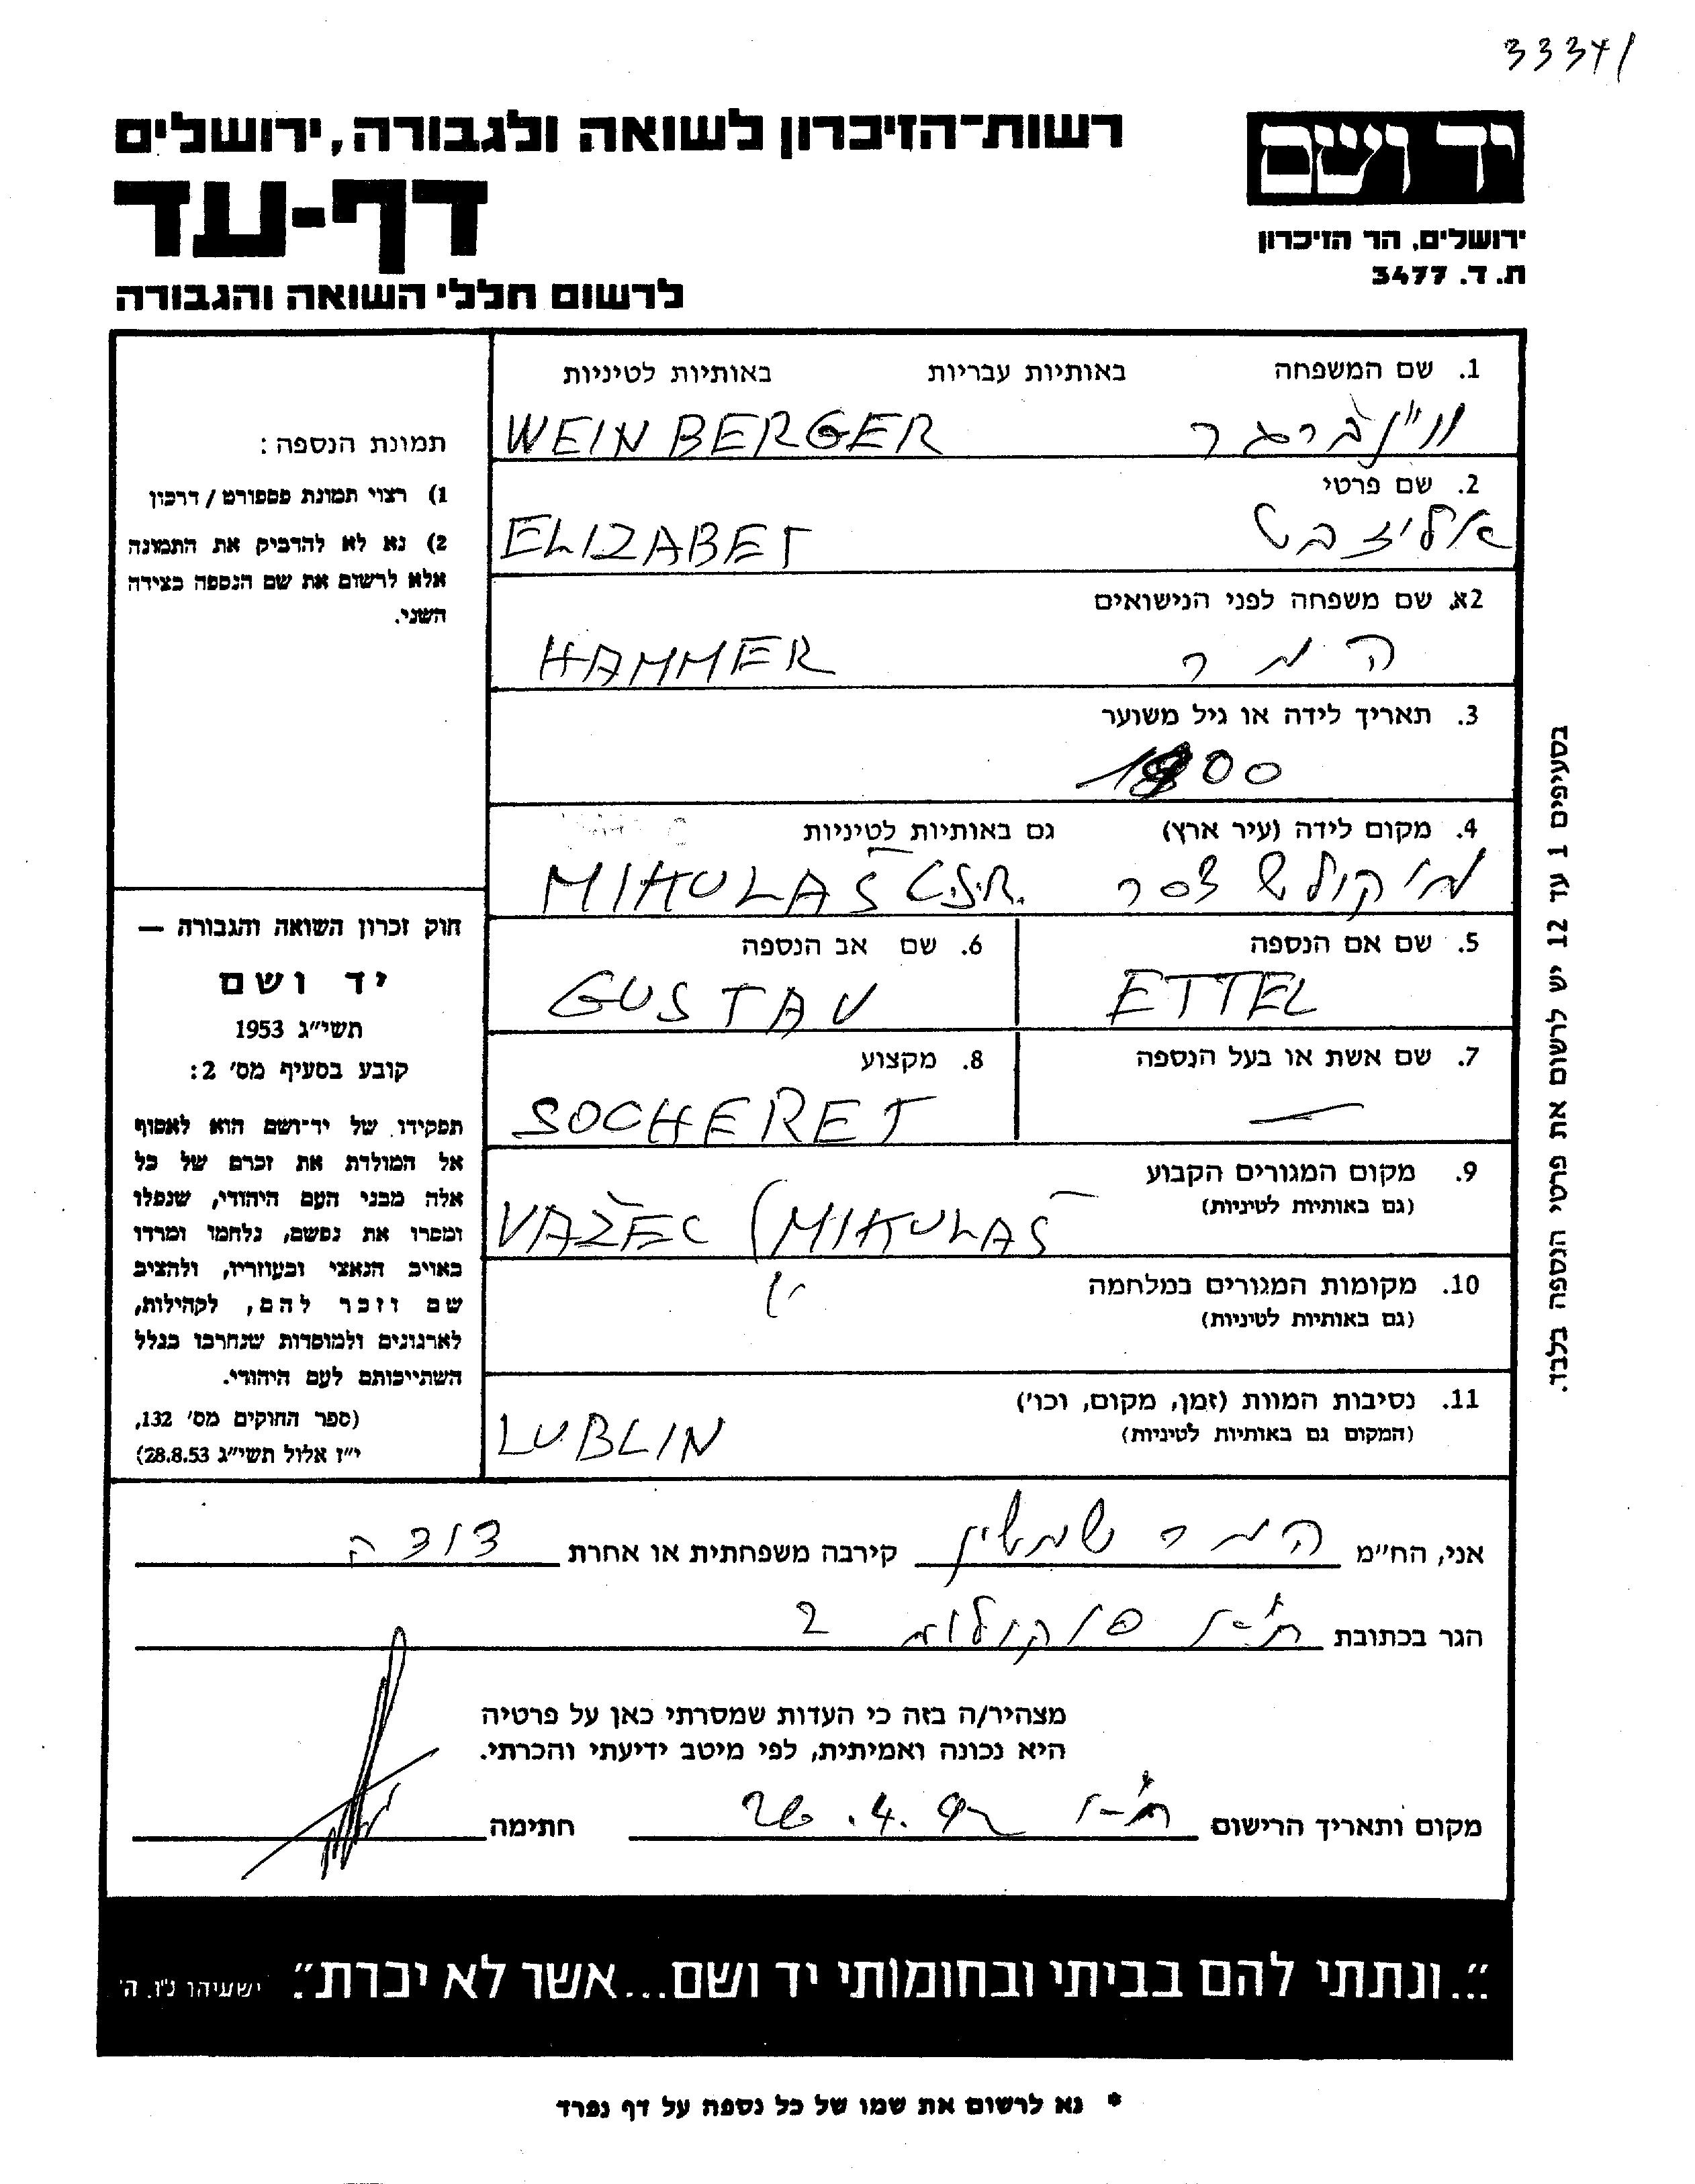 33341
יד ושם
ירושלים, הר הזיכרון
ת. ד. 3477
רשות-הזיכרון לשואה ולגבורה, ירושלים
דף-עד
לרשום חללי השואה והגבורה
1. שם המשפחה באותיות עבריות באותיות לטיניות
ווינברגר WEINBERGER
2. שם פרטי
אליזבט ELIZABET
2א. שם משפחה לפני הנישואים
המר HAMMER
3. תאריך לידה או גיל משוער
1900
4. מקום לידה (עיר ארץ) גם באותיות לטיניות
מיקולש צסר MIKULAŠ Č.S.R.
5. שם אם הנספה
ETTEL
6. שם אב הנספה
GUSTAV
7. שם אשת או בעל הנספה
—
8. מקצוע
SOCHERET
9. מקום המגורים הקבוע
(גם באותיות לטיניות)
VAŽEC (MIKULAŠ
10. מקומות המגורים במלחמה
(גם באותיות לטיניות)
11. נסיבות המוות (זמן, מקום, וכו')
(המקום גם באותיות לטיניות)
LUBLIN
תמונת הנספה:
1) רצוי תמונת פספורט / דרכון
2) נא לא להדביק את התמונה
אלא לרשום את שם הנספה בצידה
השני.
חוק זכרון השואה והגבורה —
יד ושם
תשי״ג 1953
קובע בסעיף מס׳ 2:
תפקידו של יד־ושם הוא לאסוף
אל המולדת את זכרם של כל
אלה מבני העם היהודי, שנפלו
ומסרו את נפשם, נלחמו ומרדו
באויב הנאצי ובעוזריו, ולהציב
שם וזכר להם, לקהילות,
לארגונים ולמוסדות שנחרבו בגלל
השתייכותם לעם היהודי.
(ספר החוקים מס׳ 132,
י״ז אלול תשי״ג 28.8.53)
בסעיפים 1 עד 12 יש לרשום את פרטי הנספה בלבד.
אני, הח״מ המר קירבה משפחתית או אחרת דודה
הגר בכתובת ת״א סוקולוב 2
מצהיר/ה בזה כי העדות שמסרתי כאן על פרטיה
היא נכונה ואמיתית, לפי מיטב ידיעתי והכרתי.
מקום ותאריך הרישום ת״א 26.4.92 חתימה
״...ונתתי להם בביתי ובחומותי יד ושם...אשר לא יכרת״. ישעיהו נ״ו, ה׳
* נא לרשום את שמו של כל נספה על דף נפרד